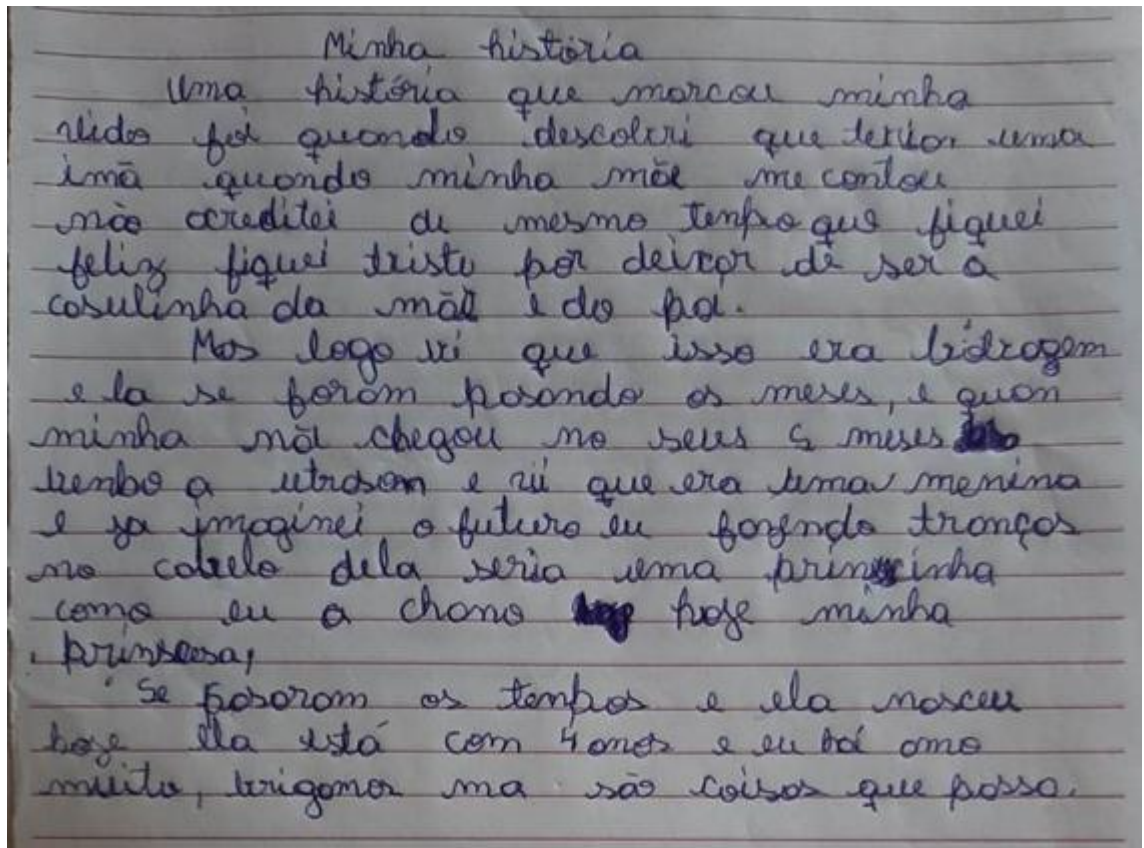 Minha história
Uma história que marcou minha
vida foi quando descobri que teria uma
imã quando minha mãe me contou
não acreditei de mesmo tenpo que fiquei
feliz fiquei triste por deixar de ser a
casulinha da mãe e do pai.
Mas logo vi que isso era bidrogem
e la se foram pasando os meses, e quan
minha mãe chegou no seus 5 meses
lenbo a utrasom e vii que era uma menina
e ja imaginei o futuro eu fazendo tranças
no cabelo dela seria uma prinscinha
como eu a chamo hoje minha
prinscesa,
Se pasaram os tempos e ela nasceu
hoje ela está com 4 anos e eu amo
muito, brigamos ma são coisas que passa.